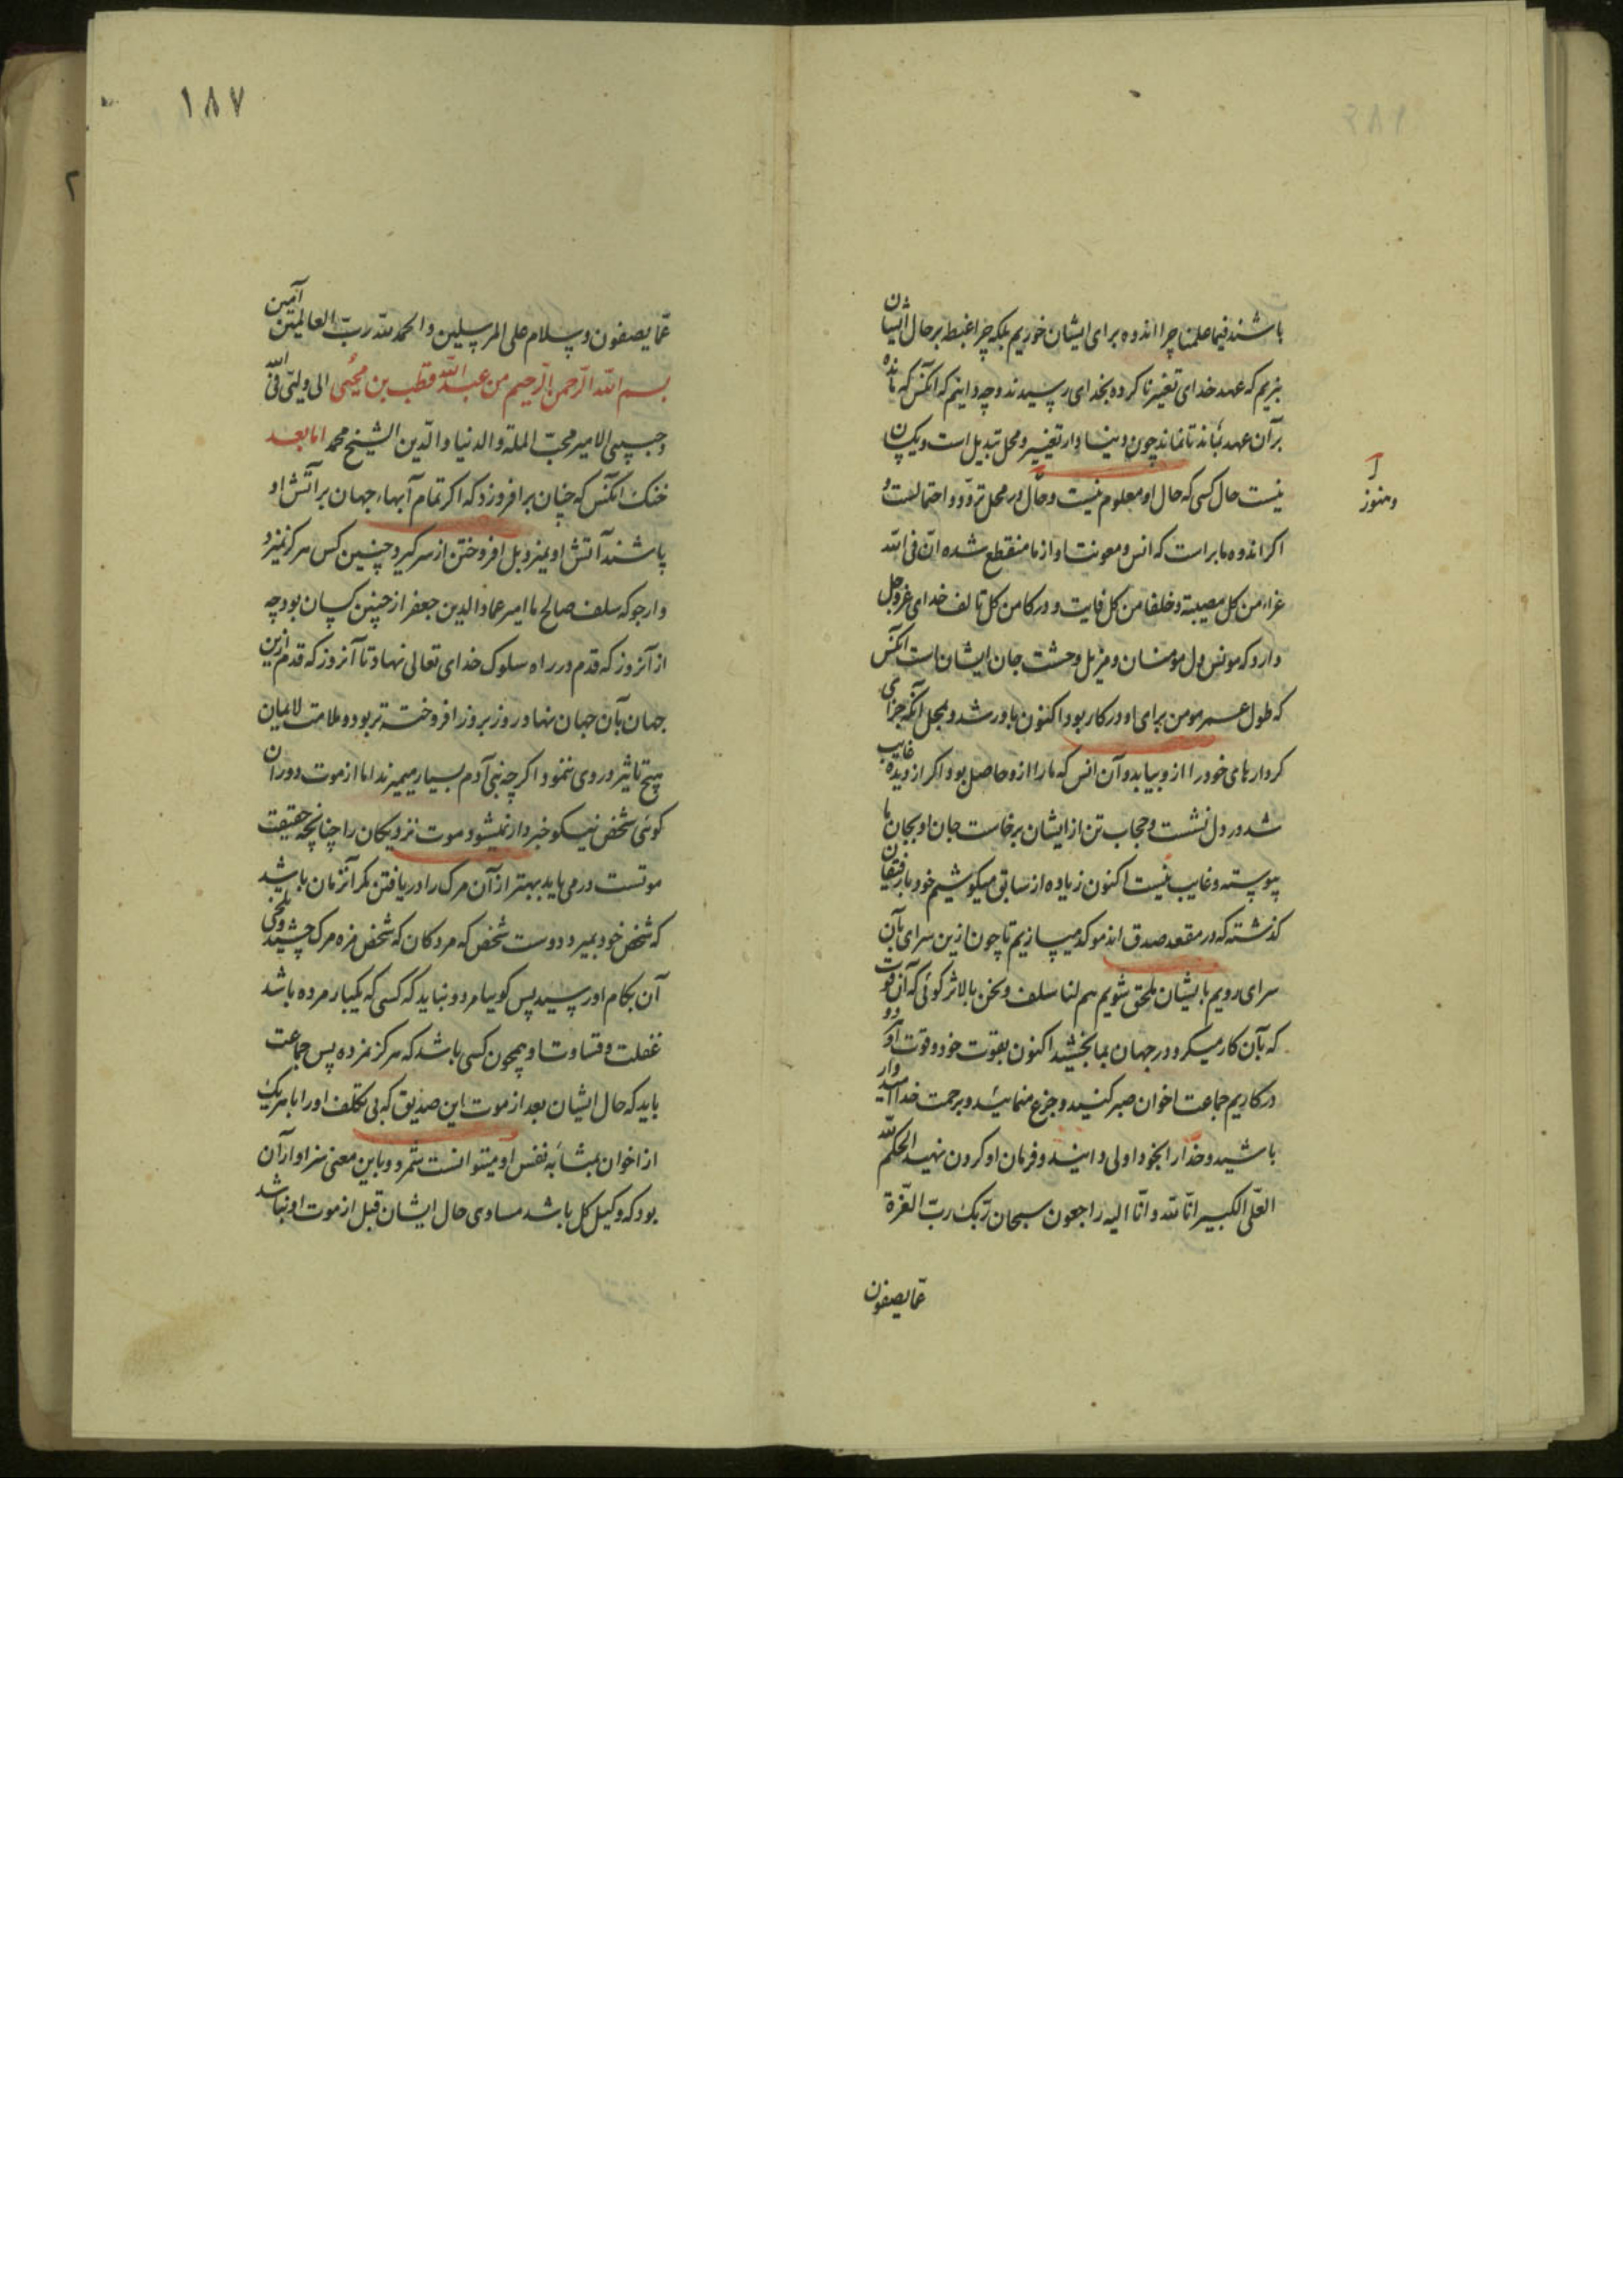 باشند فیما علمنا چرا اندوه برای ایشان خوریم بلکه چرا غبطه بر حال ایشان
نبریم که عهد خدای تغییر ناکرده بخدای رسیدند و چه دانیم که آنکس که مانده
بر آن عهد بماند تا نماند چون دنیا دار تغییر و محل تبدیل است و یکسان
نیست حال کسی که حال او معلوم نیست و حال در محل تردد و احتمالست و
وهنوز
اکر اندوه ما برای است که انس و معونت او از ما منقطع شده ان فی الله
عزاء من کل مصیبة و خلفا من کل فایت و درکا من کل تالف خدای عزوجل
دارد که مونس دل مومنان و مزیل وحشت جان ایشان است آنکس
که طول عمر مومن برای او در کار بود اکنون باور شد و بمحل آنکه جزای
کردارهای خود را ازو بیابد و آن انس که ما را ازو حاصل بود اکر از دیده غایب
شد در دل نشست و حجاب تن از ایشان برخاست جان او بجان ما
پیوسته و غایب نیست اکنون زیاده از سابق میکوشیم خود با رفیقان
کذشته که در مقعد صدق اند موکد میسازیم تا چون ازین سرای بآن
سرای رویم بایشان ملحق شویم هم لنا سلف و نحن بالاثر کوئی که آن قوت
که بآن کار میکرد در جهان بما بخشید اکنون بقوت خود و قوت او
در کاریم جماعت اخوان صبر کنید و جزع منمائید و برحمت خدا امیدوار
باشید و خدا را بخود اولی دانید و فرمان او کردن نهید الحکم لله
العلی الکبیر انا لله و انا الیه راجعون سبحان ربک رب العزة
عما یصفون
۱۸۷
عما یصفون و سلام علی المرسلین والحمد لله رب العالمین آمین
بسم الله الرحمن الرحیم من عبد الله قطب بن محیی الی ولیی فی الله
و حبیبی الامیر محب الملة والدنیا والدین الشیخ محمد اما بعد
خنک آنکس که چنان برافروزد که اکر تمام آبهاء جهان بر آتش او
پاشند آتش او نمیرد بل افروختن از سر کیرد چنین کس هرکز نمیرد
وارجو که سلف صالح ما امیر عماد الدین جعفر از چنین کسان بود چه
از آنروز که قدم در راه سلوک خدای تعالی نهاد تا آنروز که قدم ازین
جهان بآن جهان نهاد روز بروز افروخته تر بود و ملامت لائمان
هیچ تاثیر در وی ننمود اکر چه بنی آدم بسیار میمیرند اما از موت دوران
کوئی شخص نیکو خبردار نمیشود و موت نزدیکان را چنانچه حقیقت
موتست در می یابد بهتر از آن مرک را دریافتن مکر آنزمان باشد
که شخص خود بمیرد دوست شخص که مرد کان که شخص مزه مرک چشید و تلخی
آن بکام او رسید پس کوییا مرد و نباید که کسی که یکبار مرده باشد
غفلت و قساوت او همچون کسی باشد که هرکز نمرده پس جماعت
باید که حال ایشان بعد از موت این صدیق که بی تکلف او را با هر یک
از اخوان بمثابه نفس او میتوانست شمرد و باین معنی سزاوار آن
بود که وکیل کل باشد مساوی حال ایشان قبل از موت او نباشد